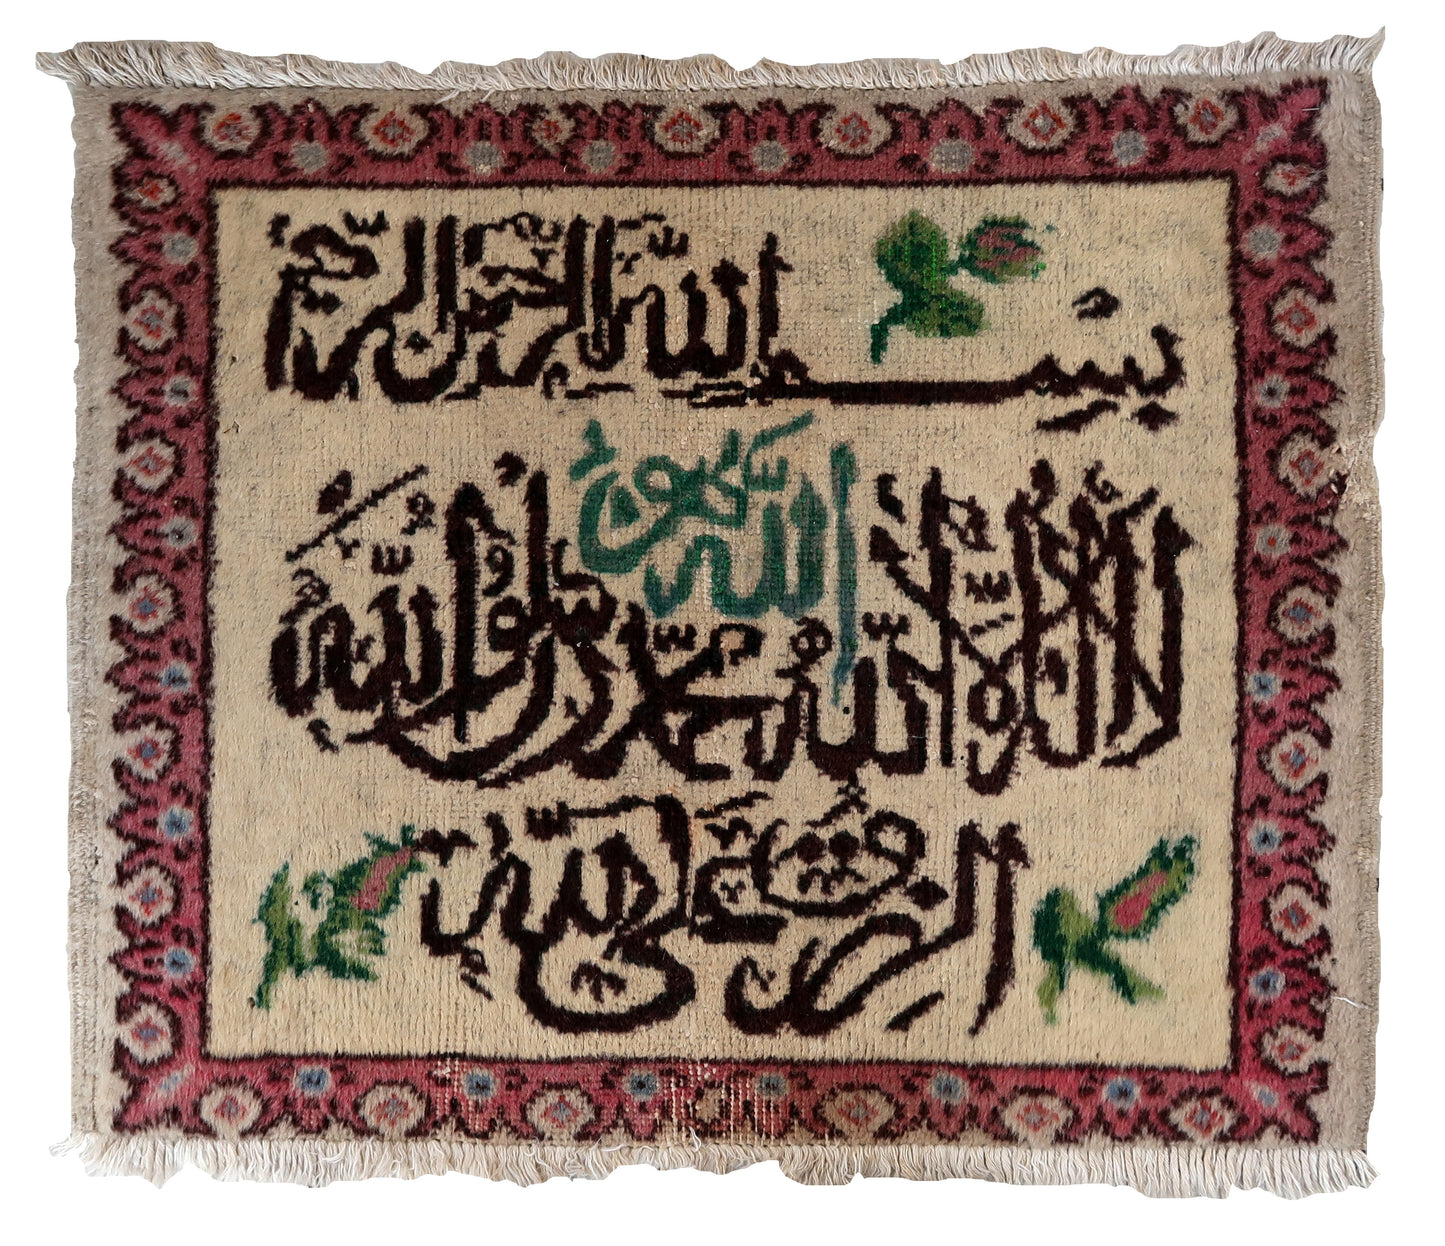 بسم الله الرحمن الرحيم
الله
لا اله الا الله محمد رسول الله
الرزق على الله